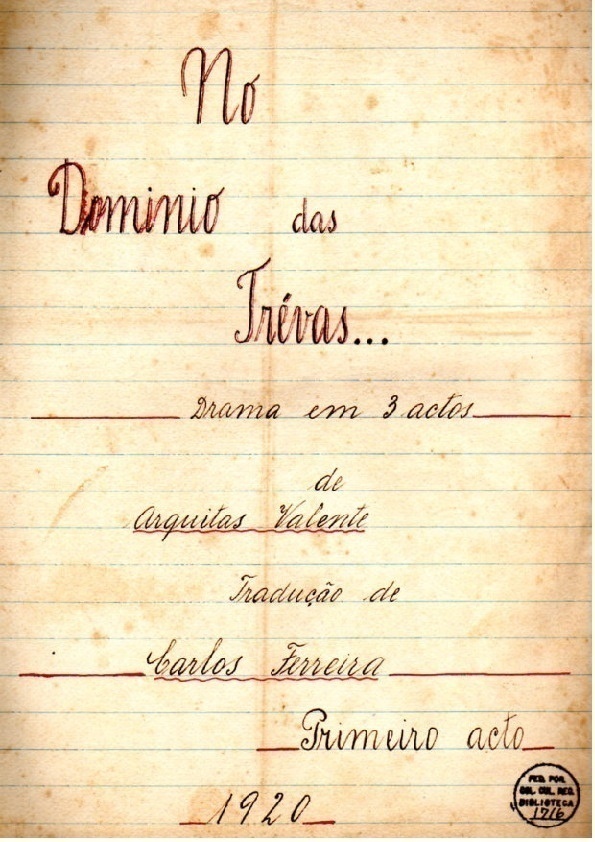 No
Dominio das
Trévas...
Drama em 3 actos
de
Arquitas Valente
Tradução de
Carlos Ferreira
Primeiro acto
1920
FED. POR.
COL. CUL. REC.
BIBLIOTECA
1716